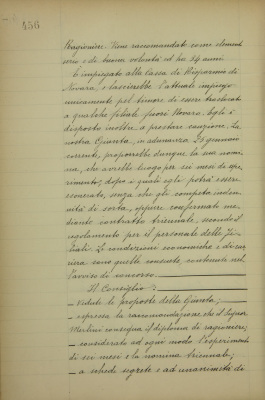 456
Ragioniere. Viene raccomandato come element
serio e di buona volontà ed ha 24 anni.
È impiegato alla Cassa di Risparmio di
Novara, e lascierebbe l'attuale impiego
unicamente pel timore di essere traslocat
a qualche filiale fuori Novara. Egli è
disposto inoltre a prestare cauzione. La
nostra Giunta, in adunanza 25 gennaio
corrente, proporrebbe dunque la sua nomi
na, che avrebbe luogo per sei mesi di espe
rimento, dopo i quali egli potrà essere
esonerato, senza che gli competa inden
nità di sorta, oppure confermato me
diante contratto triennale, secondo il
regolamento per il personale delle Fi
liali. Le condizioni economiche e di car
riera sono quelle consuete contenute nel
l'avviso di concorso.
Il Consiglio:
vedute le proposte della Giunta;
espressa la raccomandazione che il Signor
Merlini consegua il diploma di ragioniere;
considerato ad ogni modo l'esperimento
di sei mesi e la nomina triennale;
a schede segrete e ad unanimità di